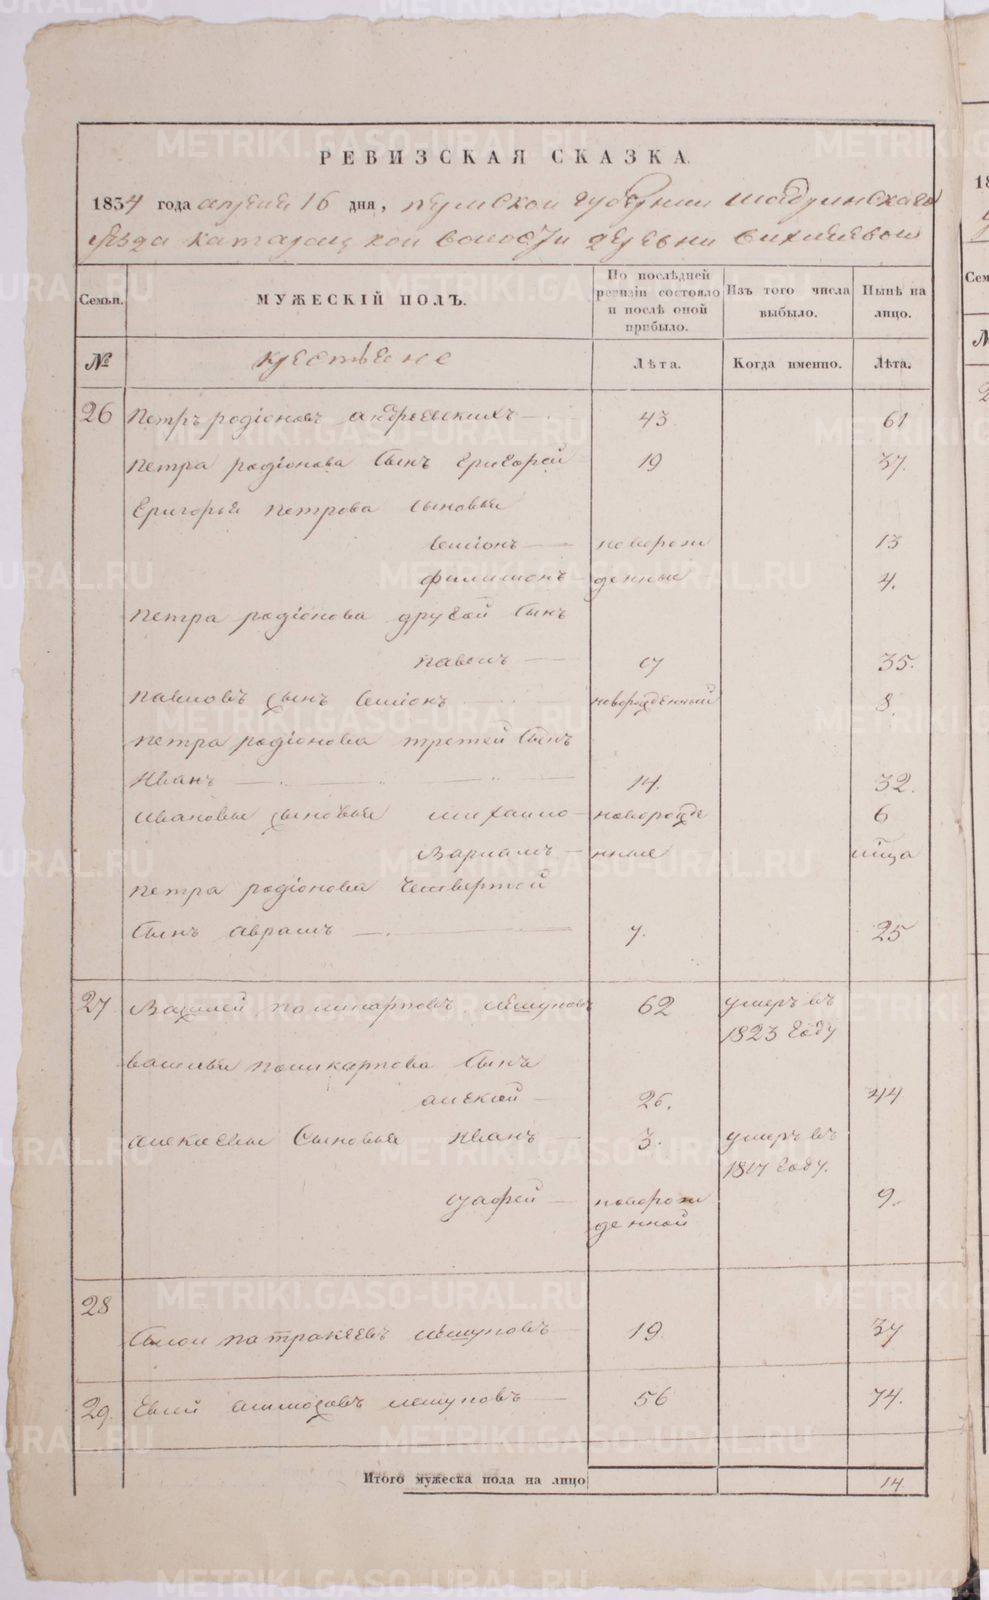 РЕВИЗСКАЯ СКАЗКА.
1834 года апреля 16 дня, пермской губернии шадринскаго
уезда катайской волости деревни
Семьи. МУЖЕСКІЙ ПОЛЪ. По послѣдней ревизіи состояло и послѣ оной прибыло. Изъ того числа выбыло. Нынѣ на лицо.
№ крестьяне Лѣта. Когда именно. Лѣта.
26 Петръ родіоновъ андреевскихъ 43 61
Петра родіонова сынъ григорей 19 37.
Григорья петрова сыновья
семіонъ новорож 13
филимонъ денные 4.
Петра родіонова другой сынъ
павелъ 17 35.
павловъ сынъ семіонъ новорожденный 8
петра родіонова третей сынъ
Иванъ 14. 32.
ивановы сыновья михаило новорожде 6
Варламъ нные
петра родіонова четвертой
сынъ аврамъ 7. 25
27 Василей поликарповъ 62 умеръ въ
1823 году
василья поликарпова сынъ
алексей 26. 44
алексеевы сыновья Иванъ 3. умеръ въ
1817 году.
новорож 9.
денной
28
патракеевъ 19 37
29. 56 74.
Итого мужеска пола на лицо 14
METRIKI.GASO-URAL.RU